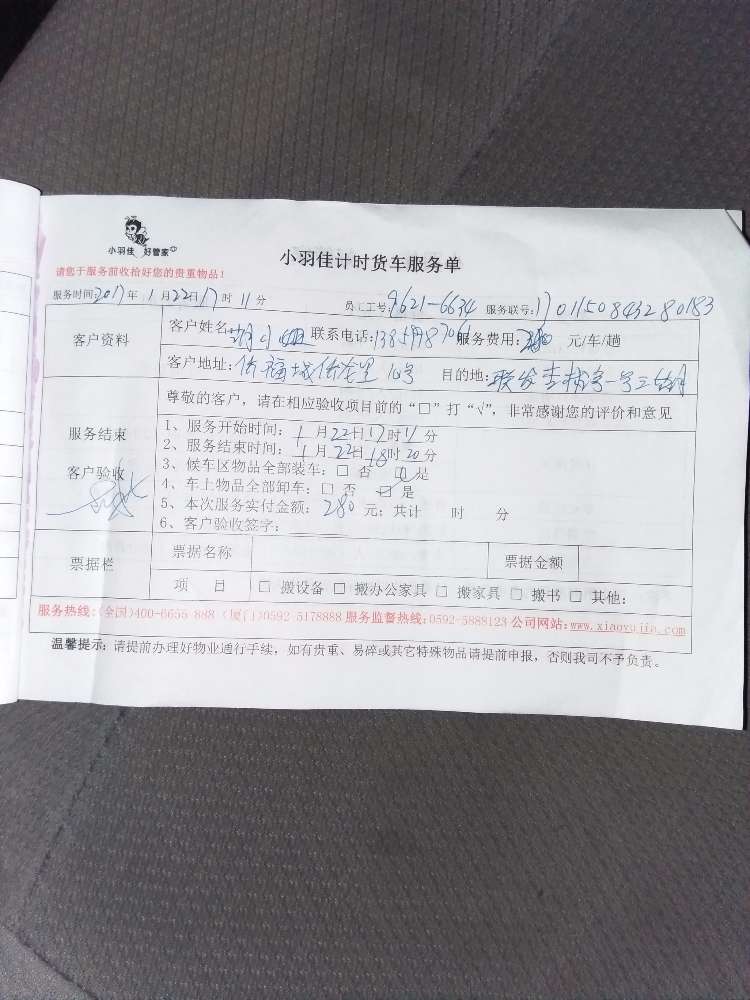 小羽佳 好管家
小羽佳计时货车服务单
请您于服务前收拾好您的贵重物品！
服务时间:2017年1月22日17时11分 员工工号:9621-6634 服务联号:1701150843280183
客户资料 客户姓名: 胡小姐 联系电话: 服务费用:280 元/车/趟
客户地址: 10号 目的地:
尊敬的客户，请在相应验收项目前的“□”打“√”，非常感谢您的评价和意见
服务结束
客户验收
1、服务开始时间：1月22日17时11分
2、服务结束时间：1月22日18时20分
3、候车区物品全部装车：□ 否 ☑ 是
4、车上物品全部卸车：□ 否 ☑ 是
5、本次服务实付金额：280元；共计 时 分
6、客户验收签字：
票据栏 票据名称 票据金额
项 目 □ 搬设备 □ 搬办公家具 □ 搬家具 □ 搬书 □ 其他：
服务热线:(全国)400-6655-888 (厦门)0592-5178888 服务监督热线:0592-5888123 公司网站:www.xiaoyujia.com
温馨提示：请提前办理好物业通行手续，如有贵重、易碎或其它特殊物品请提前申报，否则我司不予负责。